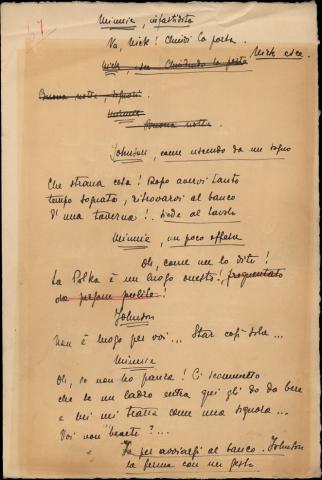 Minnie, infastidita
Va, Nick! Chiudi la porta.
Nick, Chiudendo la porta Nick esce.
Buona notte, signori.
Minnie
Buona notte.
Johnson, come uscendo da un sogno
Che strana cosa! Dopo avervi tanto
tempo sognata, ritrovarvi al banco
di una taverna! Siede al tavolo
Minnie, un poco offesa
Oh, come me lo dite!
La Polka è un luogo onesto! frequentato
da persone
Johnson
Non è luogo per voi... Star così sola...
Minnie
Oh, io non ho paura! Ci scommetto
che se un ladro entra qui gli do da bere
e mi tratta come una signora...
Voi non bevete?...
Fa per avviarsi al banco. Johnson
la ferma con un gesto.